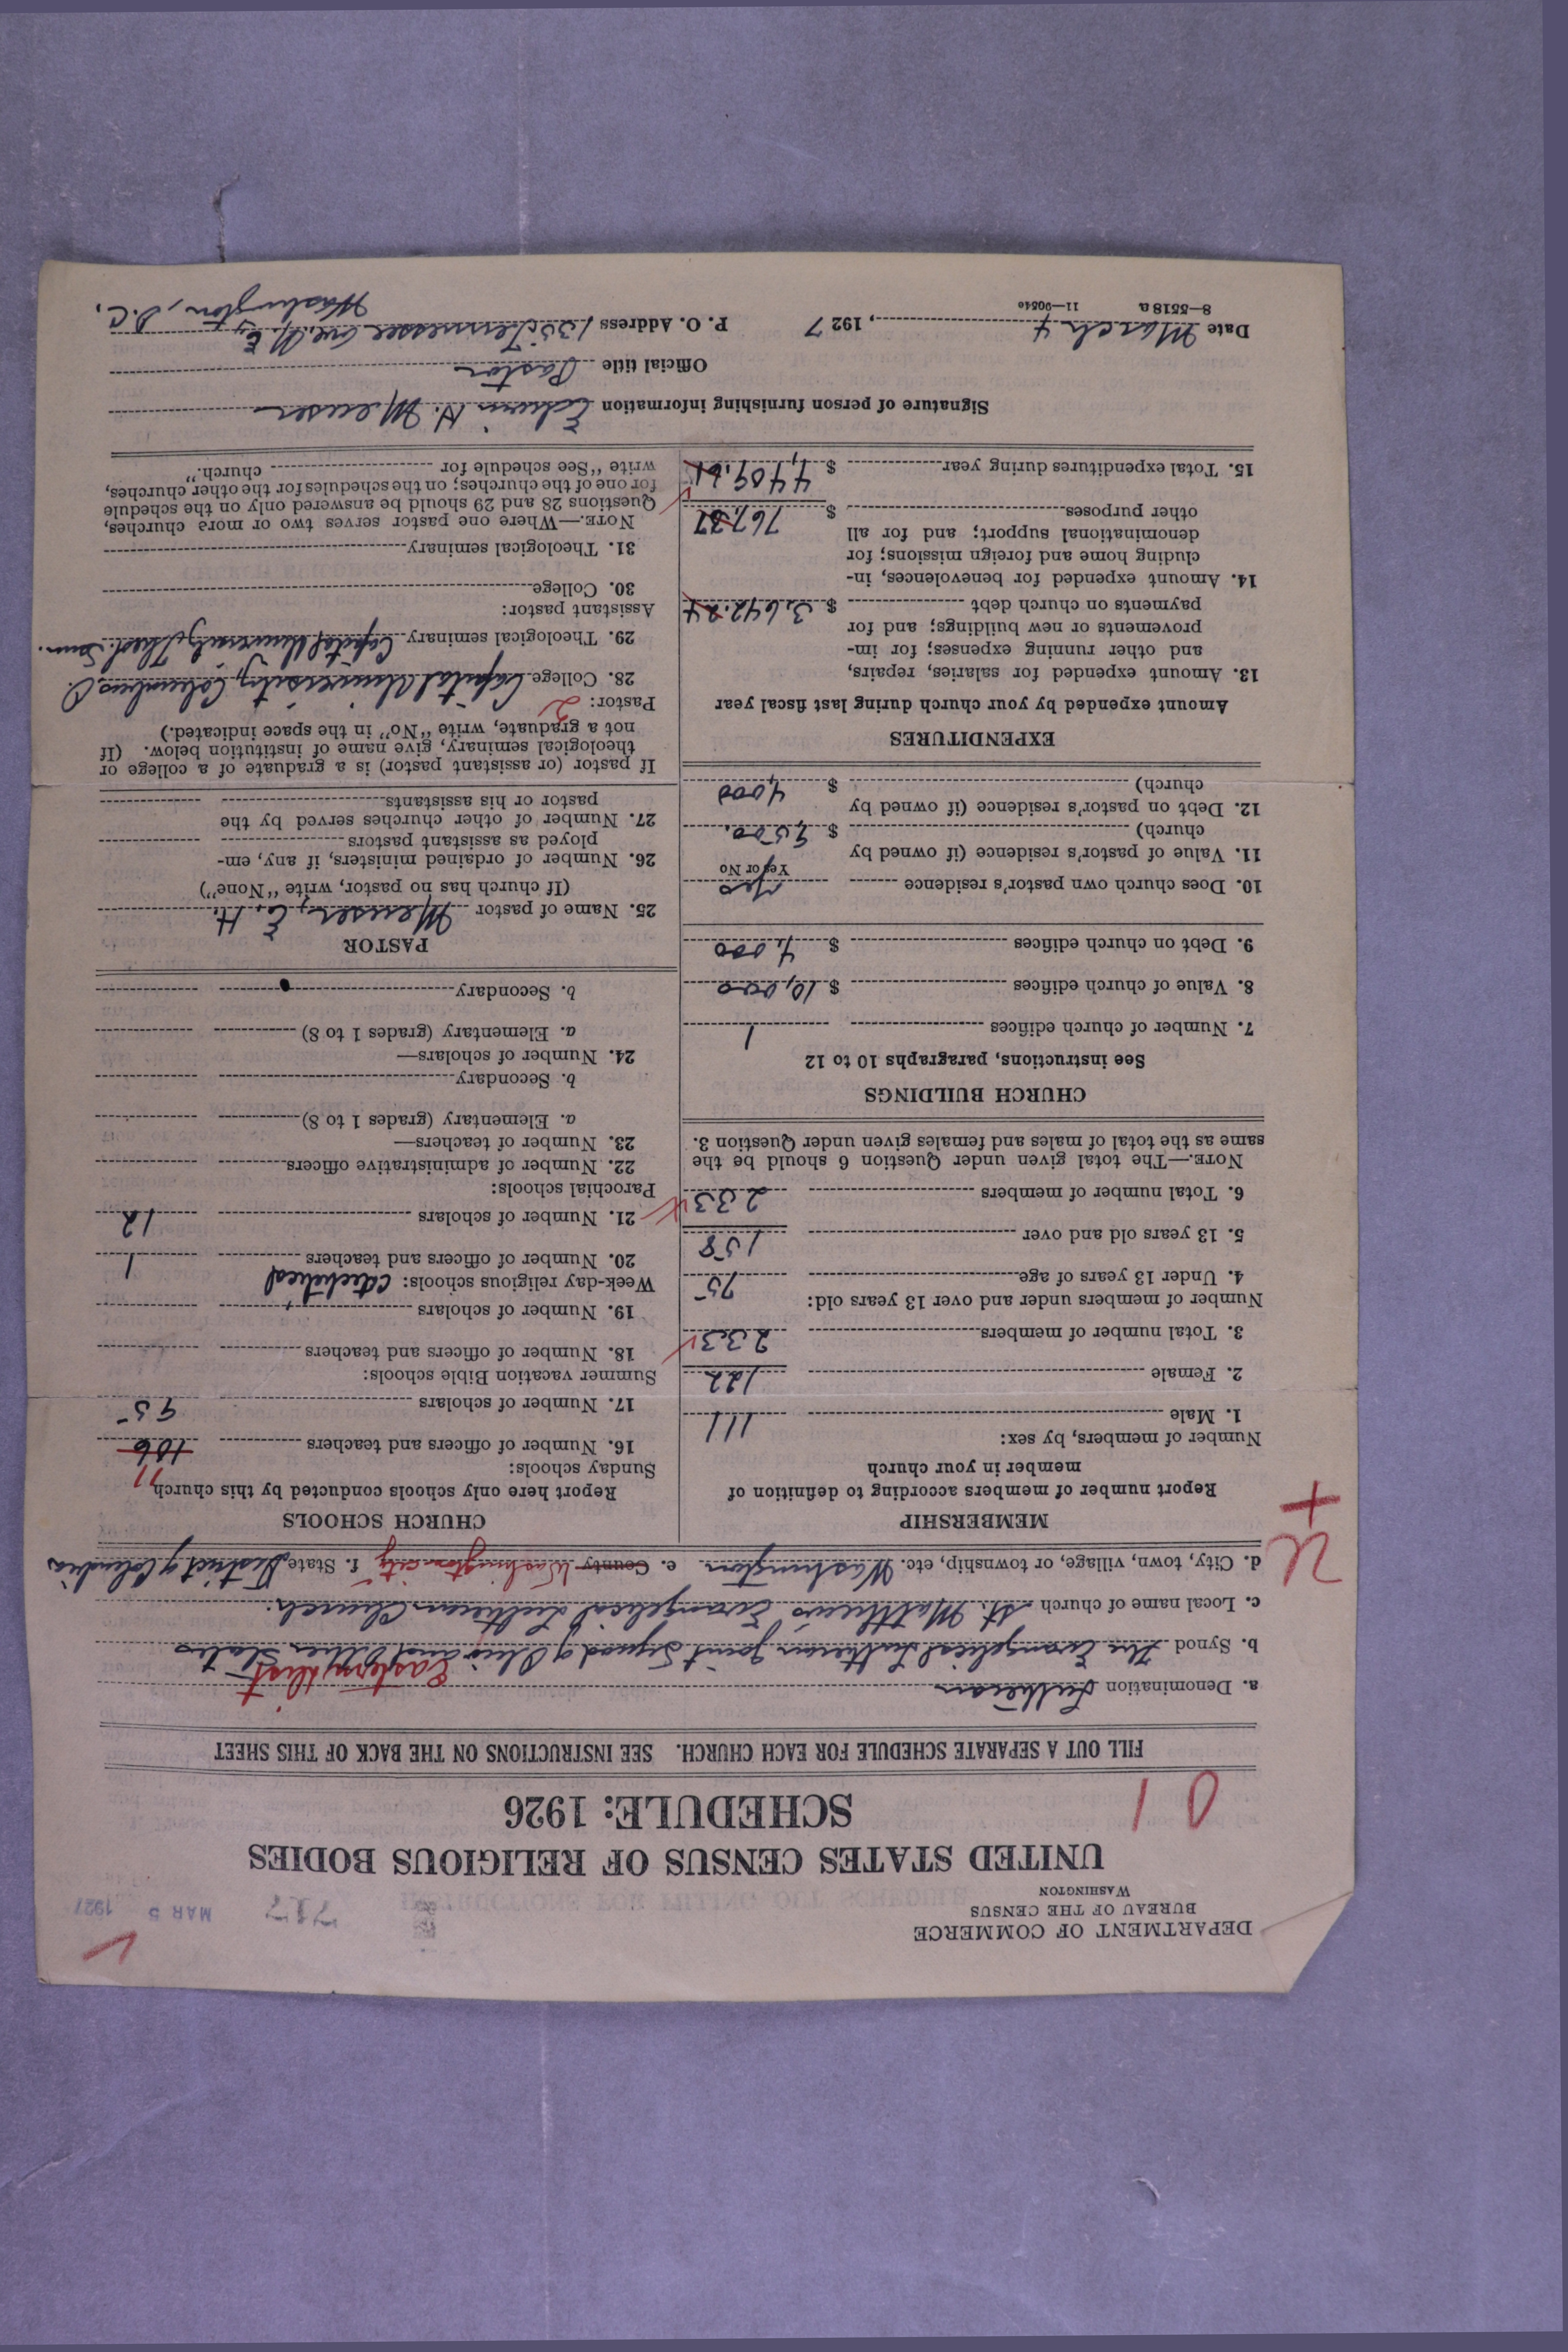 DEPARTMENT OF COMMERCE
BUREAU OF THE CENSUS
WASHINGTON
717
MAR 5 1927
UNITED STATES CENSUS OF RELIGIOUS BODIES
SCHEDULE: 1926
0 1
FILL OUT A SEPARATE SCHEDULE FOR EACH CHURCH. SEE INSTRUCTIONS ON THE BACK OF THIS SHEET
a. Denomination Lutheran
Eastern Dist
b. Synod The Evangelical Lutheran Joint Synod of Ohio and Other States
c. Local name of church St. Matthew's Evangelical Lutheran Church.
d. City, town, village, or township, etc. Washington e. County Washington city f. State District of Columbia
MEMBERSHIP
Report number of members according to definition of
member in your church
Number of members, by sex:
1. Male 111
2. Female 122
3. Total number of members 233
Number of members under and over 13 years old:
4. Under 13 years of age 75
5. 13 years old and over 158
6. Total number of members 233
NOTE.—The total given under Question 6 should be the
same as the total of males and females given under Question 3.
CHURCH BUILDINGS
See instructions, paragraphs 10 to 12
7. Number of church edifices 1
8. Value of church edifices $ 10,000
9. Debt on church edifices $ 4,000
10. Does church own pastor's residence Yes
Yes or No
11. Value of pastor's residence (if owned by
church) $ 9,500.
12. Debt on pastor's residence (if owned by
church) $ 4,000
EXPENDITURES
Amount expended by your church during last fiscal year
13. Amount expended for salaries, repairs,
and other running expenses; for im-
provements or new buildings; and for
payments on church debt $ 3,642.24
14. Amount expended for benevolences, in-
cluding home and foreign missions; for
denominational support; and for all
other purposes $ 767.37
15. Total expenditures during year $ 4,409.61
CHURCH SCHOOLS
Report here only schools conducted by this church
Sunday schools: 11
16. Number of officers and teachers 106
17. Number of scholars 95
Summer vacation Bible schools:
18. Number of officers and teachers
19. Number of scholars
Week-day religious schools: catechetical
20. Number of officers and teachers 1
21. Number of scholars 12
Parochial schools:
22. Number of administrative officers
23. Number of teachers—
a. Elementary (grades 1 to 8)
b. Secondary
24. Number of scholars—
a. Elementary (grades 1 to 8)
b. Secondary
PASTOR
25. Name of pastor Meuser, E. H.
(If church has no pastor, write "None")
26. Number of ordained ministers, if any, em-
ployed as assistant pastors
27. Number of other churches served by the
pastor or his assistants
If pastor (or assistant pastor) is a graduate of a college or
theological seminary, give name of institution below. (If
not a graduate, write "No" in the space indicated.)
Pastor: 2
28. College Capital University, Columbus, O.
29. Theological seminary Capital University, Theol. Sem.
Assistant pastor:
30. College
31. Theological seminary
NOTE.—Where one pastor serves two or more churches,
Questions 28 and 29 should be answered only on the schedule
for one of the churches; on the schedules for the other churches,
write "See schedule for church."
Signature of person furnishing information Edwin H. Meuser
Official title Pastor
Date March 4, 1927 P. O. Address Tennessee Ave. N. E.
Washington, D.C.
8—5518 a